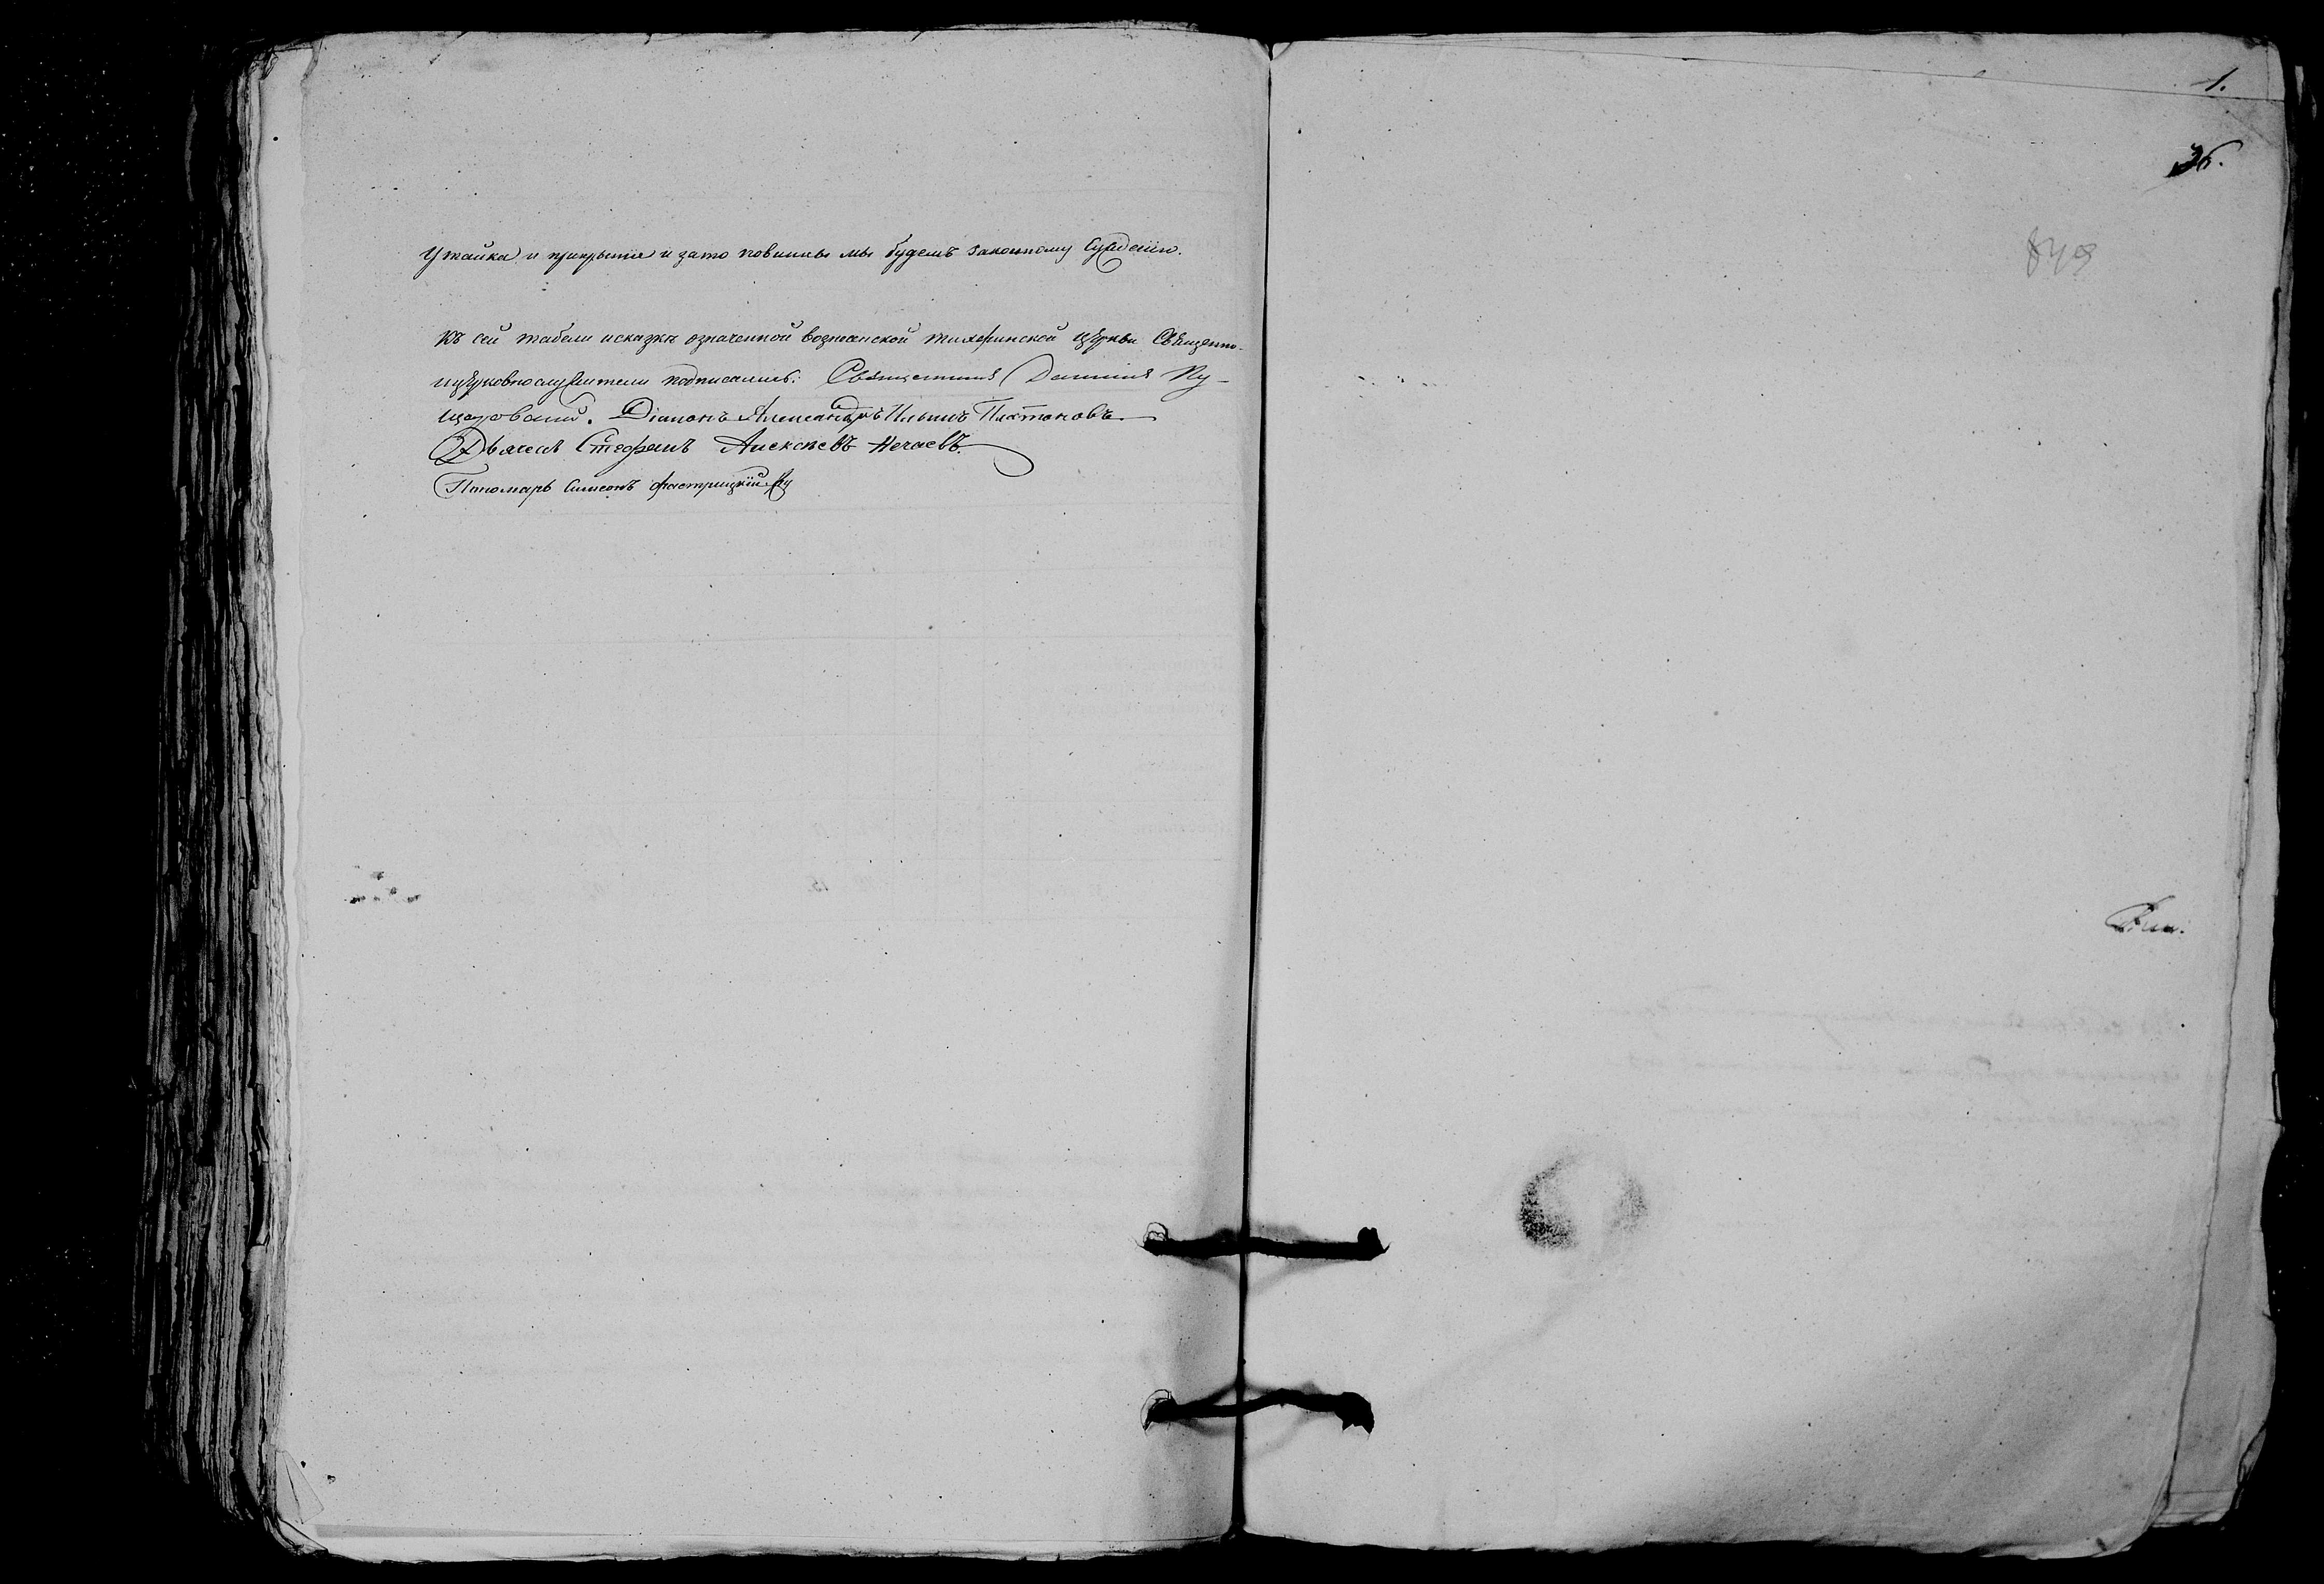 Утайка и прикрытие и зато повинны мы будемъ законному Сужденiю.
Къ сей табели исказкѣ означенной вознесенской тихвинской церкви Священно-
ицерковнослужители подписались: Священникъ Данiилъ Ку-
Дiаконъ Александръ Ильинъ Платоновъ
Дьячекъ Стефанъ Алексѣевъ Нечаевъ.
Пономарь Симеонъ
1.
36.
849